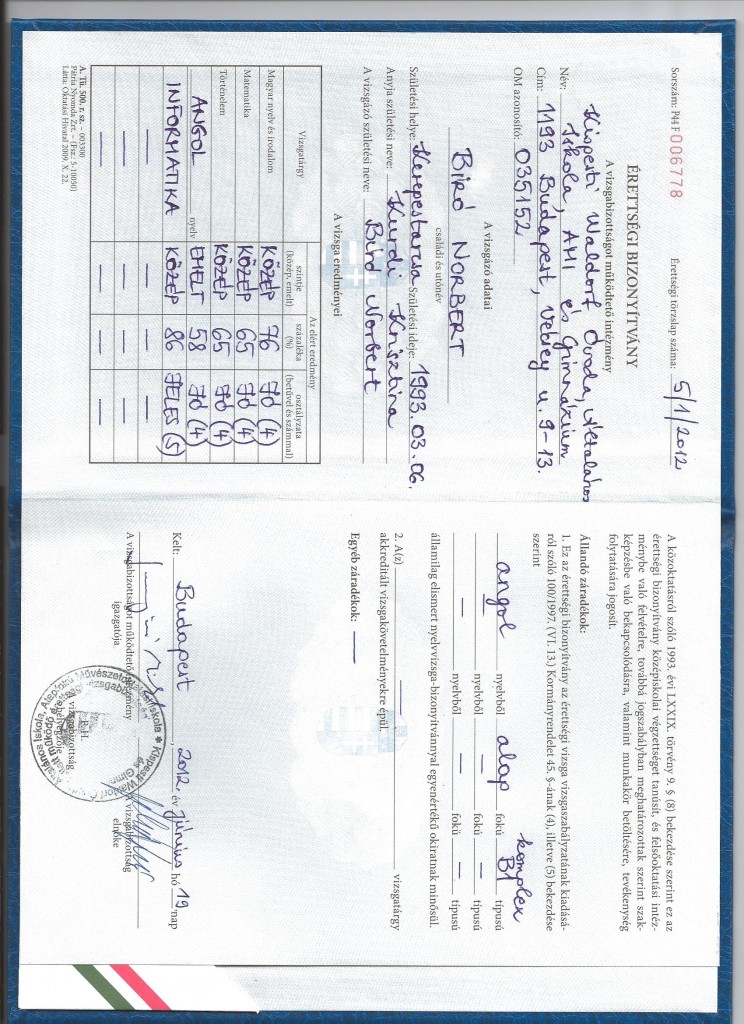 Sorszám: P44 F 006778 Érettségi törzslap száma: 5/1/2012
ÉRETTSÉGI BIZONYÍTVÁNY
A vizsgabizottságot működtető intézmény
Kispesti Waldorf Óvoda, Általános
Név: Iskola, AMI és Gimnázium
Cím: 1193 Budapest, Vécsey u. 9-13.
OM azonosító: 035152
A vizsgázó adatai
BIRÓ NORBERT
családi és utónév
Születési helye: Kerepestarcsa Születési ideje: 1993.03.06.
Anyja születési neve: Kurdi Krisztina
A vizsgázó születési neve: Biró Norbert
A vizsga eredményei
Vizsgatárgy Az elért eredmény
szintje (közép, emelt) százaléka (%) osztályzata (betűvel és számmal)
Magyar nyelv és irodalom KÖZÉP 76 JÓ (4)
Matematika KÖZÉP 65 JÓ (4)
Történelem KÖZÉP 65 JÓ (4)
ANGOL nyelv EMELT 58 JÓ (4)
INFORMATIKA KÖZÉP 86 JELES (5)
— — — —
— — — —
— — — —
A. Tü. 500. r. sz. – 003300
Pátria Nyomda Zrt. – (Fsz.: 5-10050)
Látta: Oktatási Hivatal 2009. X. 22.
A közoktatásról szóló 1993. évi LXXIX. törvény 9. § (8) bekezdése szerint ez az
érettségi bizonyítvány középiskolai végzettséget tanúsít, és felsőoktatási intéz-
ménybe való felvételre, továbbá jogszabályban meghatározottak szerint szak-
képzésbe való bekapcsolódásra, valamint munkakör betöltésére, tevékenység
folytatására jogosít.
Állandó záradékok:
1. Ez az érettségi bizonyítvány az érettségi vizsga vizsgaszabályzatának kiadásá-
ról szóló 100/1997. (VI. 13.) Kormányrendelet 45. §-ának (4), illetve (5) bekezdése
szerint
komplex
angol nyelvből alap fokú B1 típusú
— nyelvből — fokú — típusú
— nyelvből — fokú — típusú
államilag elismert nyelvvizsga-bizonyítvánnyal egyenértékű okiratnak minősül.
2. A(z) — vizsgatárgy
akkreditált vizsgakövetelményekre épül.
Egyéb záradékok: —
Kelt: Budapest, 2012. év június hó 19 nap
A vizsgabizottságot működtető intézmény
igazgatója
P. H.
a vizsgabizottság
jegyzője
a vizsgabizottság
elnöke